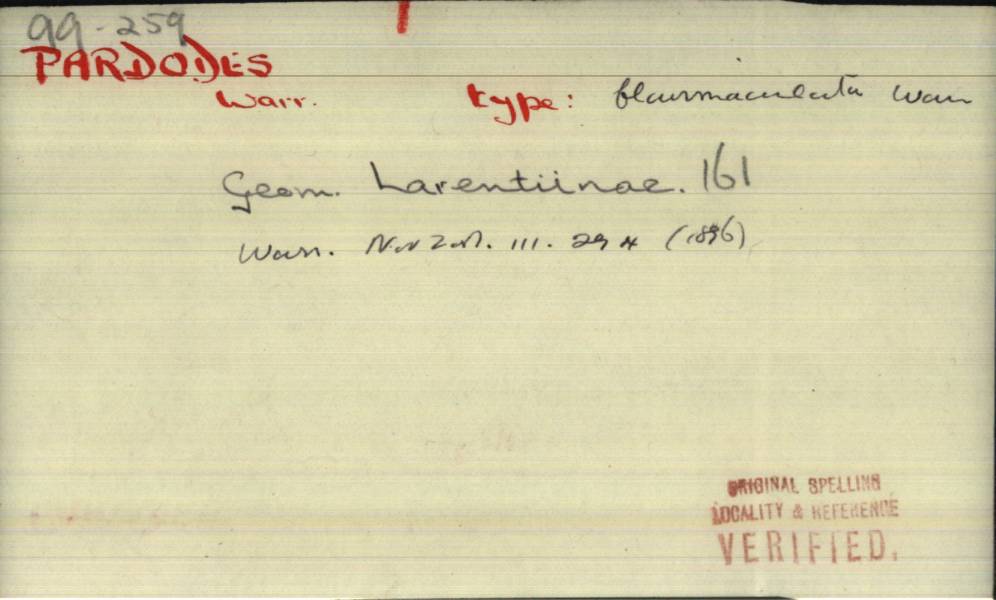 99-259
PARDODES
Warr. type: flavimaculata Warr
Geom. Larentiinae. 161
Warr. Nov Zool. III. 294 (1896)
ORIGINAL SPELLING
LOCALITY & REFERENCE
VERIFIED.